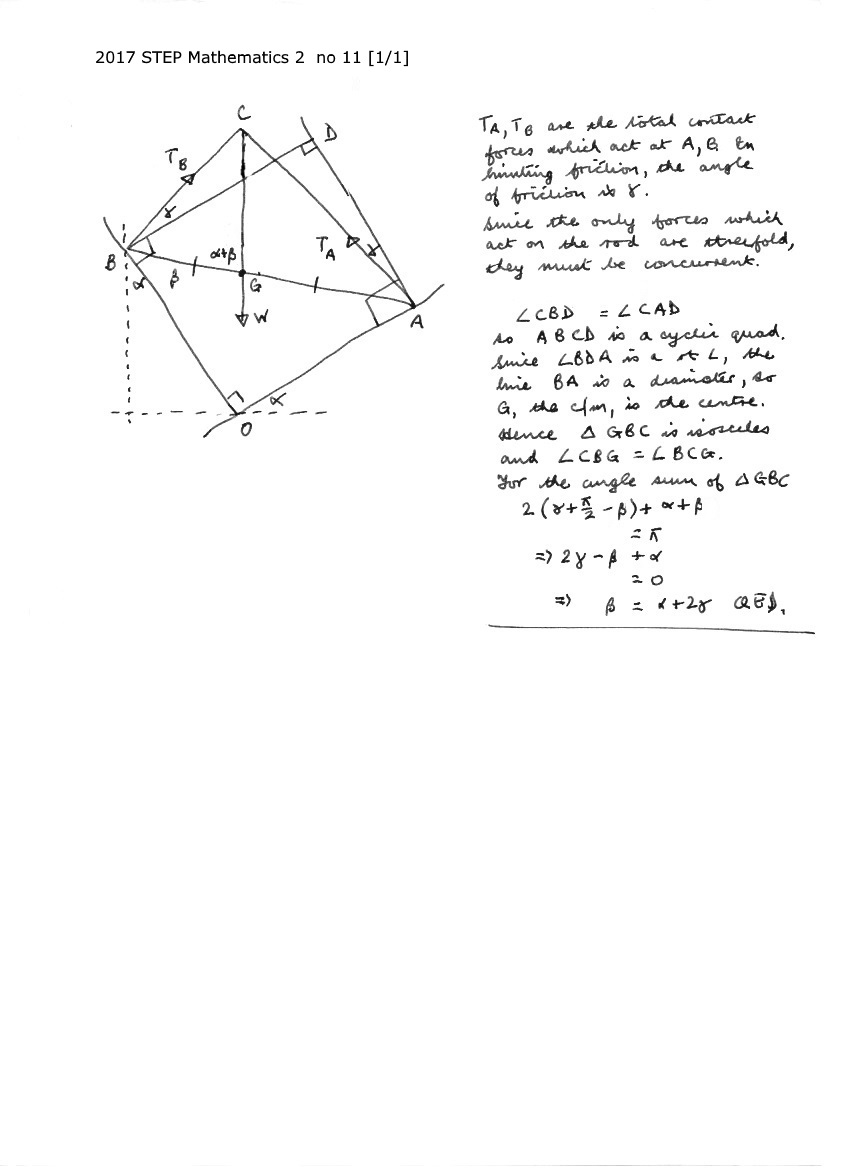 2017 STEP Mathematics 2 no 11 [1/1]
C
D
T_B
γ
B
α
β
α+β
G
W
T_A
γ
A
O
α
T_A, T_B are the total contact
forces which act at A, B. In
limiting friction, the angle
of friction is γ.
Since the only forces which
act on the rod are threefold,
they must be concurrent.
∠CBD = ∠CAD
so ABCD is a cyclic quad.
Since ∠BDA is a rt ∠, the
line BA is a diameter, so
G, the c/m, is the centre.
Hence △ GBC is isosceles
and ∠CBG = ∠BCG.
For the angle sum of △GBC
2(γ+π/2 -β)+ α+β
= π
=> 2γ - β + α
= 0
=> β = α+2γ QED.